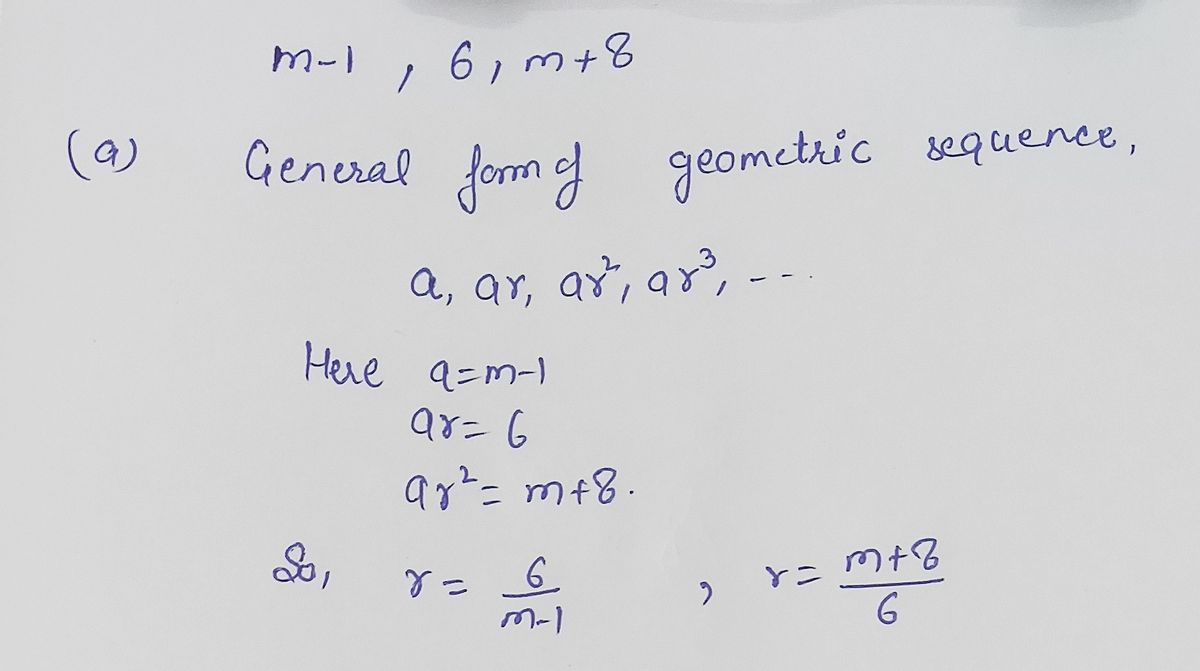 m-1 , 6, m+8
(a) General form of geometric sequence,
a, ar, ar², ar³, ---.
Here a=m-1
ar= 6
ar²= m+8.
So, r = 6/m-1 , r= m+8/6